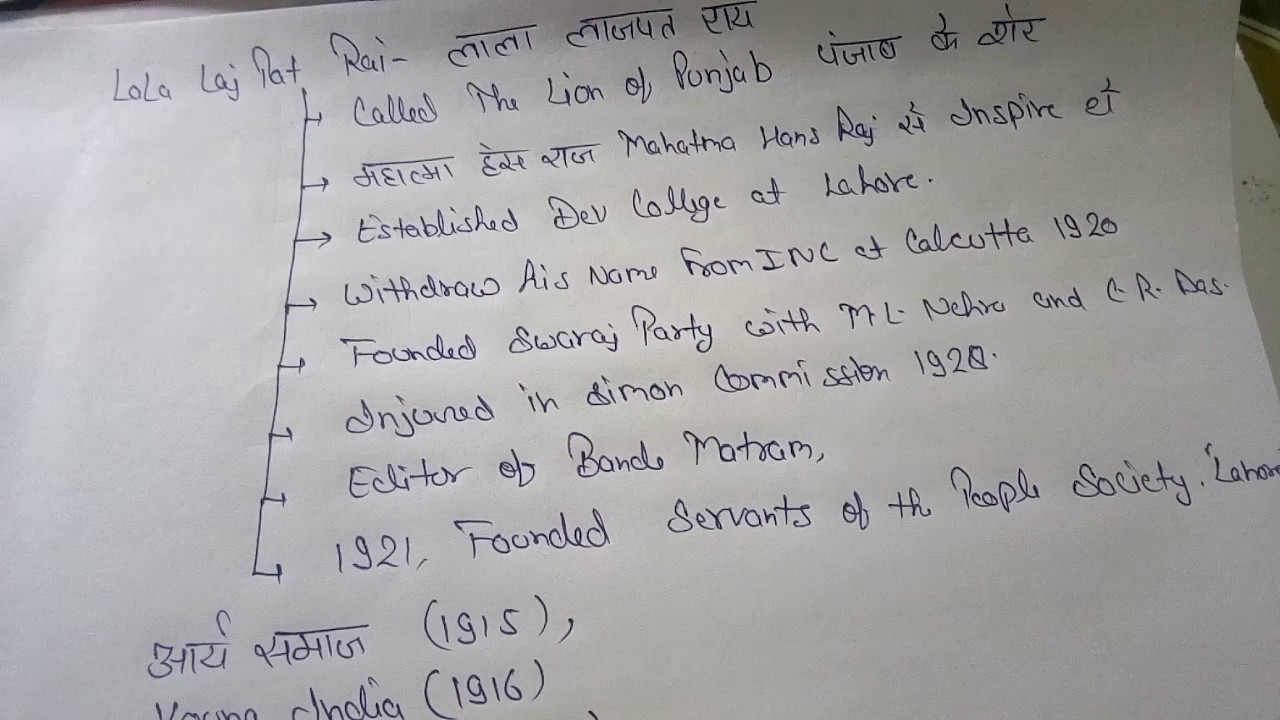 LaLa Laj Pat Rai- लाला लाजपत राय
Called The Lion of Punjab पंजाब के शेर
महात्मा हंस राज Mahatma Hans Raj से Inspire हो
Established Dev College at Lahore.
Withdraw his Name from INC at Calcutta 1920
Founded Swaraj Party with M.L. Nehru and C.R. Das.
Injured in Simon Commission 1928.
Editor of Bande Matram,
1921, Founded Servants of th People Society. Lahor
आर्य समाज (1915),
Young India (1916)